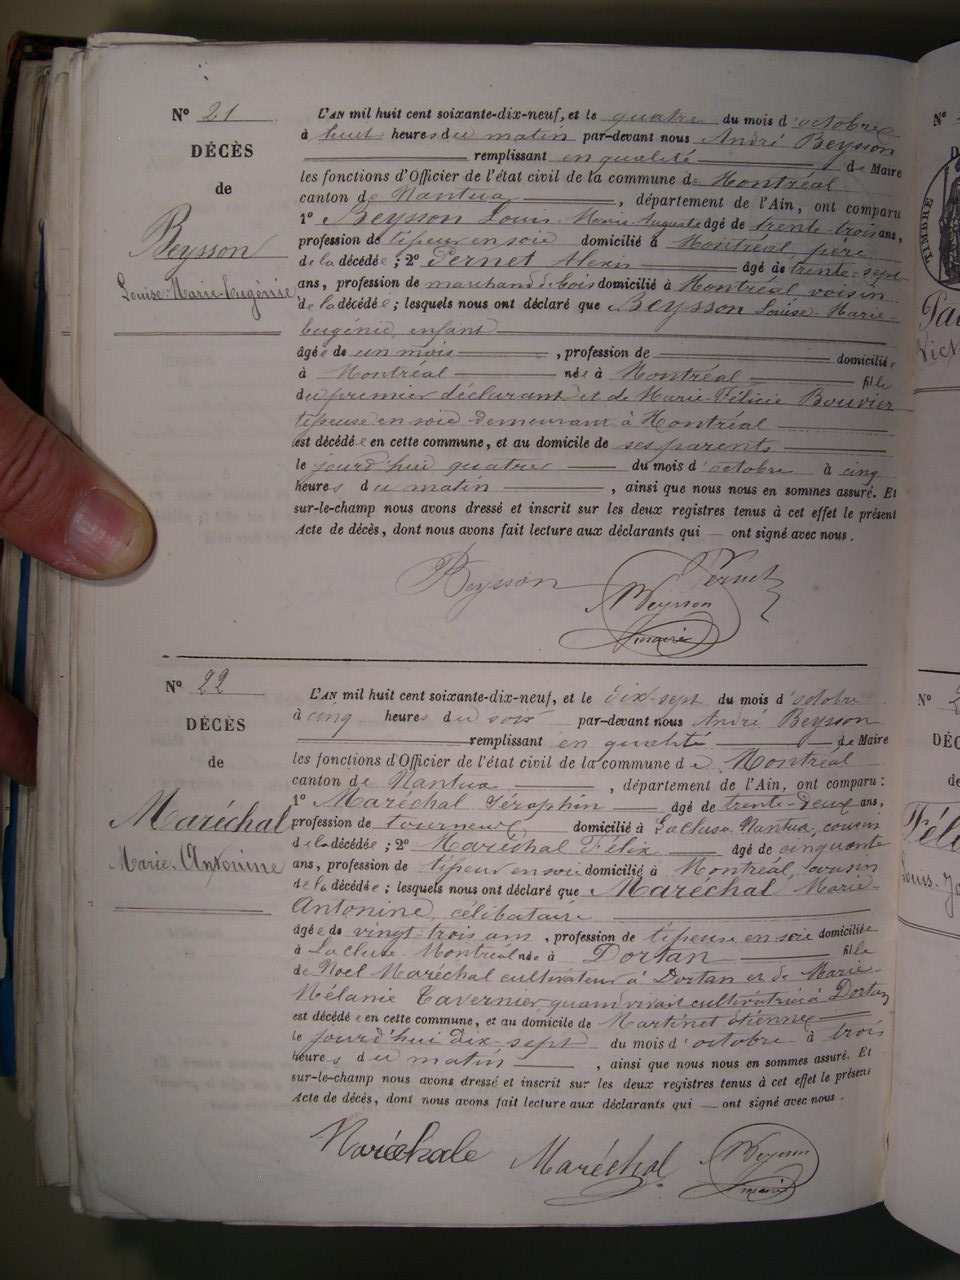 N° 21
DÉCÈS
de
Beysson
Louise-Marie-Eugénie
L'AN mil huit cent soixante-dix-neuf, et le quatre du mois d'octobre
à huit heures du matin par-devant nous André Beysson
remplissant en qualité de Maire
les fonctions d'Officier de l'état civil de la commune de Montréal
canton de Nantua, département de l'Ain, ont comparu
1° Beysson Louis Marie Auguste âgé de trente-trois ans,
profession de tisseur en soie domicilié à Montréal père
de la décédée ; 2° Pernet Alexis âgé de trente-sept
ans, profession de marchand de bois domicilié à Montréal voisin
de la décédée ; lesquels nous ont déclaré que Beysson Louise-Marie-
Eugénie enfant
âgée de un mois, profession de domiciliée
à Montréal née à Montréal fille
du premier déclarant et de Marie-Félicie Bouvier
tisseuse en soie demeurant à Montréal
est décédée en cette commune, et au domicile de ses parents
le jourd'hui quatre du mois d'octobre à cinq
heures du matin, ainsi que nous nous en sommes assuré. Et
sur-le-champ nous avons dressé et inscrit sur les deux registres tenus à cet effet le présent
Acte de décès, dont nous avons fait lecture aux déclarants qui — ont signé avec nous.
Beysson Pernet
Beysson
maire
N° 22
DÉCÈS
de
Maréchal
Marie-Antonine
L'AN mil huit cent soixante-dix-neuf, et le dix-sept du mois d'octobre
à cinq heures du soir par-devant nous André Beysson
remplissant en qualité de Maire
les fonctions d'Officier de l'état civil de la commune de Montréal
canton de Nantua, département de l'Ain, ont comparu :
1° Maréchal Séraphin âgé de trente-deux ans,
profession de tourneur domicilié à Lacluse, Nantua, cousin
de la décédée ; 2° Maréchal Félix âgé de cinquante
ans, profession de tisseur en soie domicilié à Montréal, cousin
de la décédée ; lesquels nous ont déclaré que Maréchal Marie-
Antonine, célibataire
âgée de vingt-trois ans, profession de tisseuse en soie domiciliée
à Lacluse Montréal née à Dortan fille
de Noel Maréchal cultivateur à Dortan et de Marie-
Mélanie Tavernier quand vivait cultivatrice à Dortan
est décédée en cette commune, et au domicile de Martinet Etienne
le jourd'hui dix-sept du mois d'octobre à trois
heures du matin, ainsi que nous nous en sommes assuré. Et
sur-le-champ nous avons dressé et inscrit sur les deux registres tenus à cet effet le présent
Acte de décès, dont nous avons fait lecture aux déclarants qui — ont signé avec nous.
Maréchale Maréchal Beysson
maire
N°
TIMBRE
N°
DÉC
de